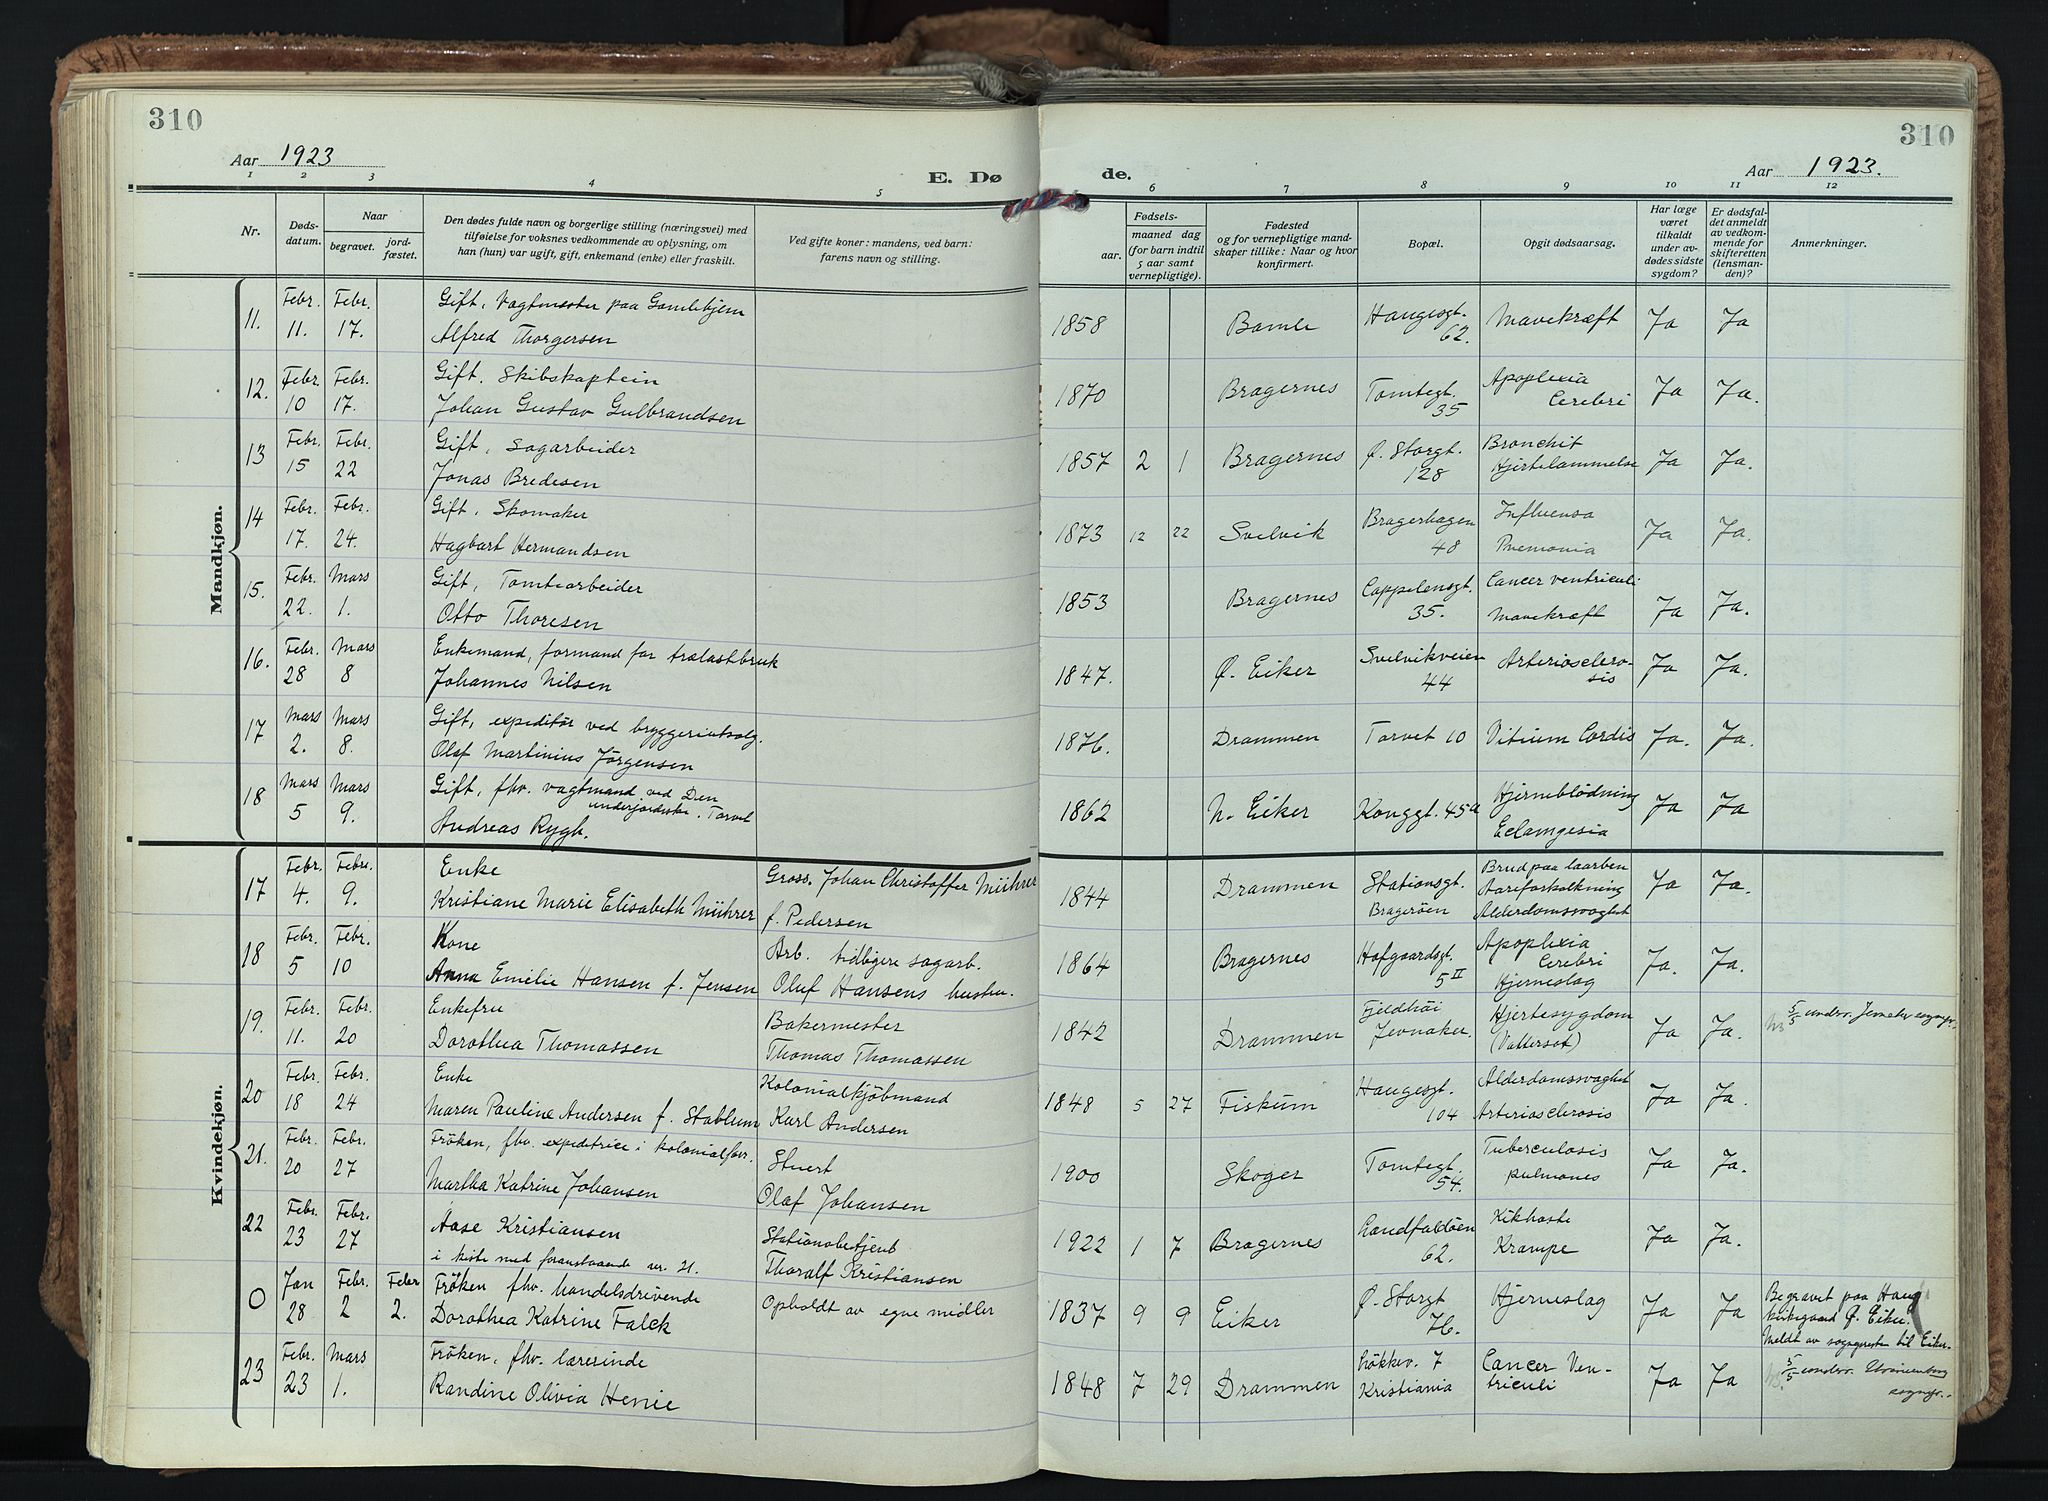 310
310
Aar 1923
E. Dø
de.
Aar 1923.
1 2 3 4 5 6 7 8 9 10 11 12
Nr.
Døds-
datum.
Naar
begravet.
jord-
fæstet.
Den dødes fulde navn og borgerlige stilling (næringsvei) med
tilføielse for voksnes vedkommende av oplysning, om
han (hun) var ugift, gift, enkemand (enke) eller fraskilt.
Ved gifte koner: mandens, ved barn:
farens navn og stilling.
Fødsels-
aar.
maaned dag
(for barn indtil
5 aar samt
vernepligtige).
Fødested
og for vernepligtige mand-
skaper tillike: Naar og hvor
konfirmert.
Bopæl.
Opgit dødsaarsag.
Har læge
været
tilkaldt
under av-
dødes sidste
sygdom?
Er dødsfal-
det anmeldt
av vedkom-
mende for
skifteretten
(lensman-
den)?
Anmerkninger.
Mandkjøn.
11. Febr. 11. Febr. 17. Gift, Vagtmester paa Gamlehjem
Alfred Thorgersen
1858 Bamle Haugesgt. 62. Mavekræft Ja Ja
12. Febr. 10 Febr. 17. Gift. Skibskaptein
Johan Gustav Gulbrandsen
1870 Bragernes Tomtegt. 35 Apoplexia Cerebri Ja Ja.
13 Febr. 15 Febr. 22 Gift, Sagarbeider
Jonas Bredesen
1857 2 1 Bragernes Ø. Storgt. 128 Bronchit Hjertelammelse Ja Ja.
14 Febr. 17. Febr. 24. Gift, Skomaker
Hagbart Hermandsen
1873 12 22 Svelvik Bragerhagen 48 Influensa Pnemonia Ja Ja.
15. Febr. 22. Mars 1. Gift, Tomtearbeider
Otto Thoresen
1853 Bragernes Cappelensgt. 35. Cancer ventriculi Mavekræft Ja Ja.
16. Febr. 28 Mars 8 Enkemand, formand for trælastbruk
Johannes Nilsen
1847. Ø. Eiker Svelvikveien 44 Arteriosclero-
sis Ja Ja.
17 Mars 2. Mars 8. Gift, expeditør ved bryggeriutsalg.
Olaf Martinius Jörgensen
1876. Drammen Torvet 10 Vitium Cordis Ja. Ja.
18 Mars 5 Mars 9. Gift, fhv. vagtmand ved Den
underjordiske, Torvet
Andreas Rygh.
1862 N. Eiker Konggt. 45a Hjerneblödning Eclamgesia Ja Ja
Kvindekjøn.
17 Febr. 4. Febr. 9. Enke
Kristiane Marie Elisabeth Mührer
Gross. Johan Christoffer Mührer
f. Pedersen
1844 Drammen Stationsgt. Bragerøen Brud paa laarben
Aareforkalkning
Alderdomssvaghet Ja Ja.
18 Febr. 5 Febr. 10 Kone
Anna Emelie Hansen f. Jensen
Arb. tidligere sagarb.
Oluf Hansens hustru.
1864 Bragernes Hofgaardsgt. 5 II Apoplexia Cerebri
Hjerneslag Ja. Ja.
19. Febr. 11. Febr. 20 Enkefru
Dorothea Thomassen
Bakermester
Thomas Thomassen
1842 Drammen Fjeldhöi Jevnaker. Hjertesygdom
(Vattersot) Ja Ja. 5/5 underr. Jevnaker sogngr.
20 Febr. 18 Febr. 24 Enke
Maren Pauline Andersen f. Stablum
Kolonialkjöbmand
Karl Andersen
1848 5 27 Fiskum Haugesgt. 104 Alderdomssvaghet
Arteriosclerosis Ja Ja.
21. Febr. 20 Febr. 27 Fröken, fhv. expeditrice i kolonialforr.
Martha Katrine Johansen
Stuert
Olaf Johansen
1900 Skoger Tomtegt. 54. Tuberculosis
pulmones Ja Ja.
22 Febr. 23 Febr. 27 Aase Kristiansen
i kiste med foranstaaende nr. 21.
Stationsbetjent
Thoralf Kristiansen
1922 1 7 Bragernes Landfaldöen 62. Kikhoste
Krampe Ja Ja.
0 Jan 28 Febr. 2 Febr 2. Fröken fhv. handelsdrivende
Dorothea Katrine Falck
Opholdt av egne midler
1837 9 9 Eiker Ø. Storgt 76. Hjerneslag Ja Ja Begravet paa Haug
kirkegaard Ø. Eiker.
Meldt av sogneprest til Eiker.
23 Febr. 23 Mars 1. Fröken, fhv. lærerinde
Randine Olivia Henie
1848 7 29 Drammen Lökkev. 7 Kristiania Cancer Ven-
triculi Ja Ja 5/5 underr. Uranienborg
sogngr.